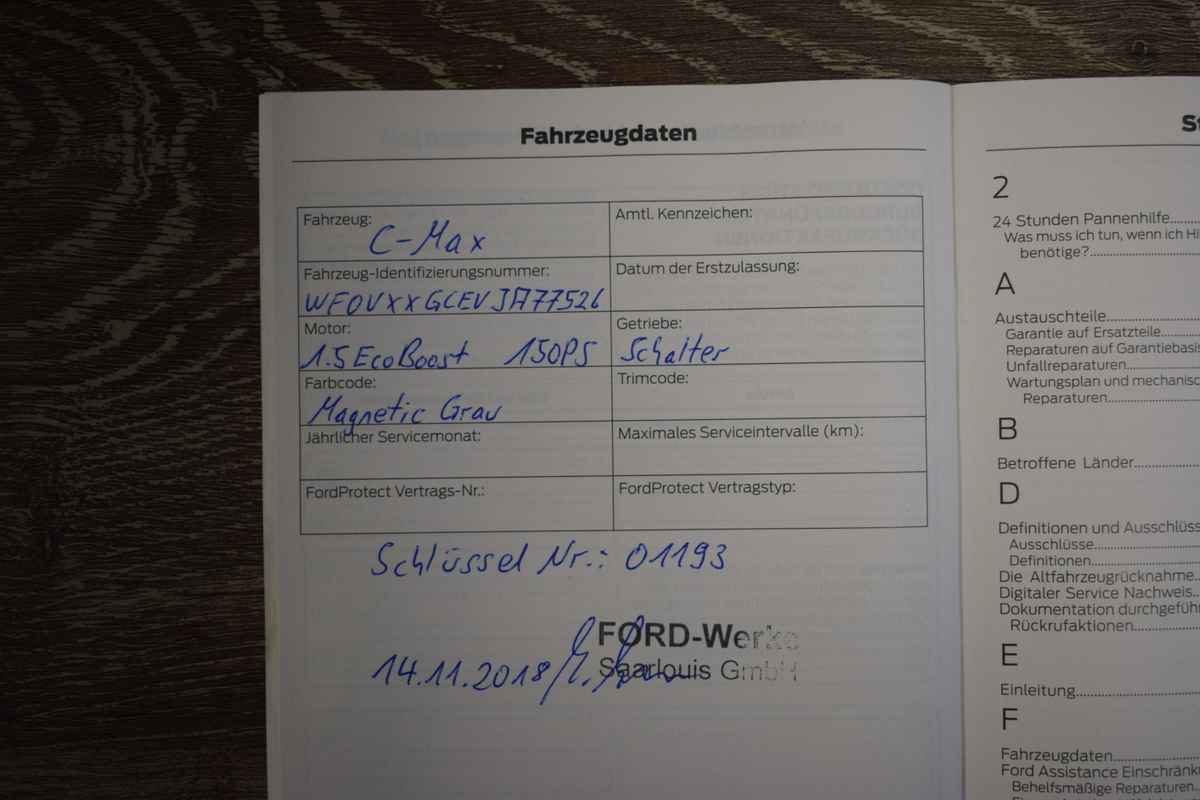 Fahrzeugdaten
Fahrzeug:
C-Max
Amtl. Kennzeichen:
Fahrzeug-Identifizierungsnummer:
WF0VXXGCEVJA77526
Datum der Erstzulassung:
Motor:
1.5 EcoBoost 150PS
Getriebe:
Schalter
Farbcode:
Magnetic Grau
Trimcode:
Jährlicher Servicemonat:
Maximales Serviceintervalle (km):
FordProtect Vertrags-Nr.:
FordProtect Vertragstyp:
Schlüssel Nr.: 01193
FORD-Werke
Saarlouis GmbH
14.11.2018
St
2
24 Stunden Pannenhilfe
Was muss ich tun, wenn ich Hi
benötige?
A
Austauschteile
Garantie auf Ersatzteile
Reparaturen auf Garantiebasis
Unfallreparaturen
Wartungsplan und mechanisc
Reparaturen
B
Betroffene Länder
D
Definitionen und Ausschlüss
Ausschlüsse
Definitionen
Die Altfahrzeugrücknahme
Digitaler Service Nachweis
Dokumentation durchgefüh
Rückrufaktionen
E
Einleitung
F
Fahrzeugdaten
Ford Assistance Einschränku
Behelfsmäßige Reparaturen